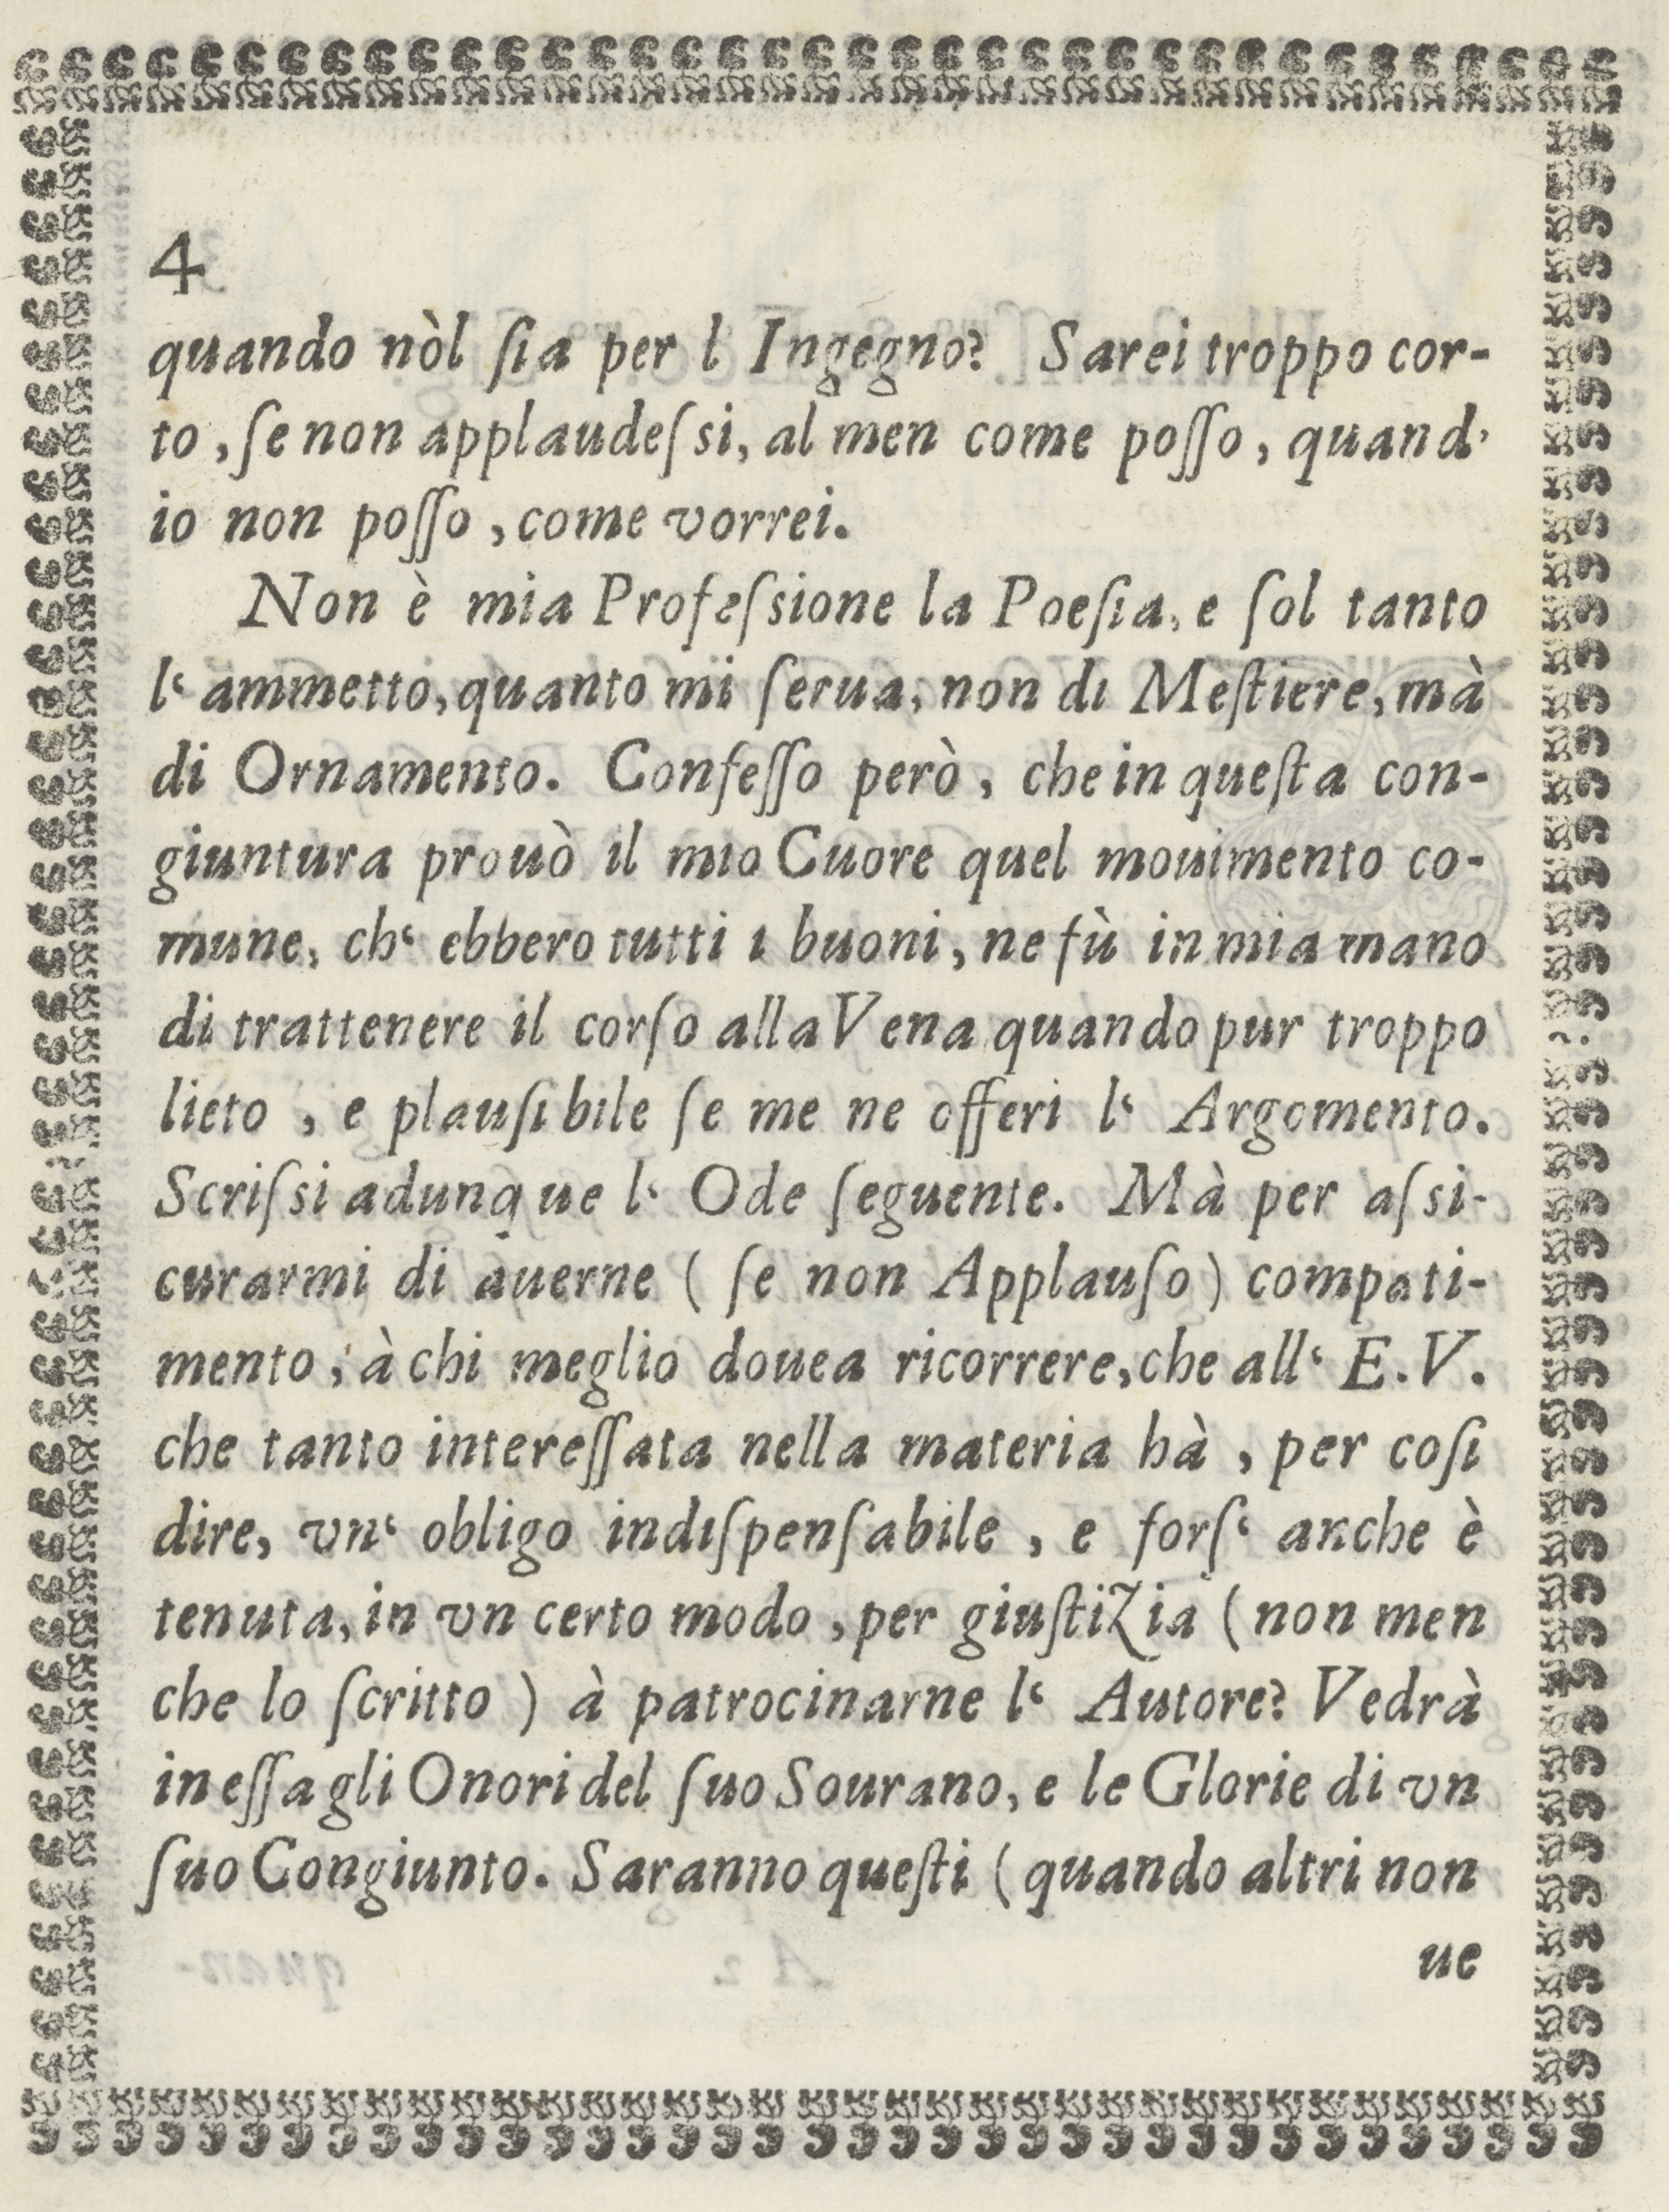 4
quando nòl ſia per l Ingegno? Sarei troppo cor-
to, ſe non applaudeſsi, al men come poſſo, quand'
io non poſſo, come vorrei.
Non è mia Profeſsione la Poeſia, e ſol tanto
l‘ ammetto, quanto mi ſerua, non di Meſtiere, mà
di Ornamento. Confeſſo però, che in queſta con-
giuntura prouò il mio Cuore quel mouimento co-
mune, ch‘ ebbero tutti i buoni, ne fù in mia mano
di trattenere il corſo alla Vena quando pur troppo
lieto, e plauſibile ſe me ne offeri l‘ Argomento.
Scriſsi adunque l‘ Ode ſeguente. Mà per aſsi-
curarmi di auerne (ſe non Applauſo) compati-
mento, à chi meglio douea ricorrere, che all‘ E.V.
che tanto intereſſata nella materia hà, per coſi
dire, vn‘ obligo indiſpenſabile, e forſ‘ anche è
tenuta, in vn certo modo, per giuſtizia (non men
che lo ſcritto) à patrocinarne l‘ Autore? Vedrà
in eſſa gli Onori del ſuo Sourano, e le Glorie di vn
ſuo Congiunto. Saranno queſti (quando altri non
ue